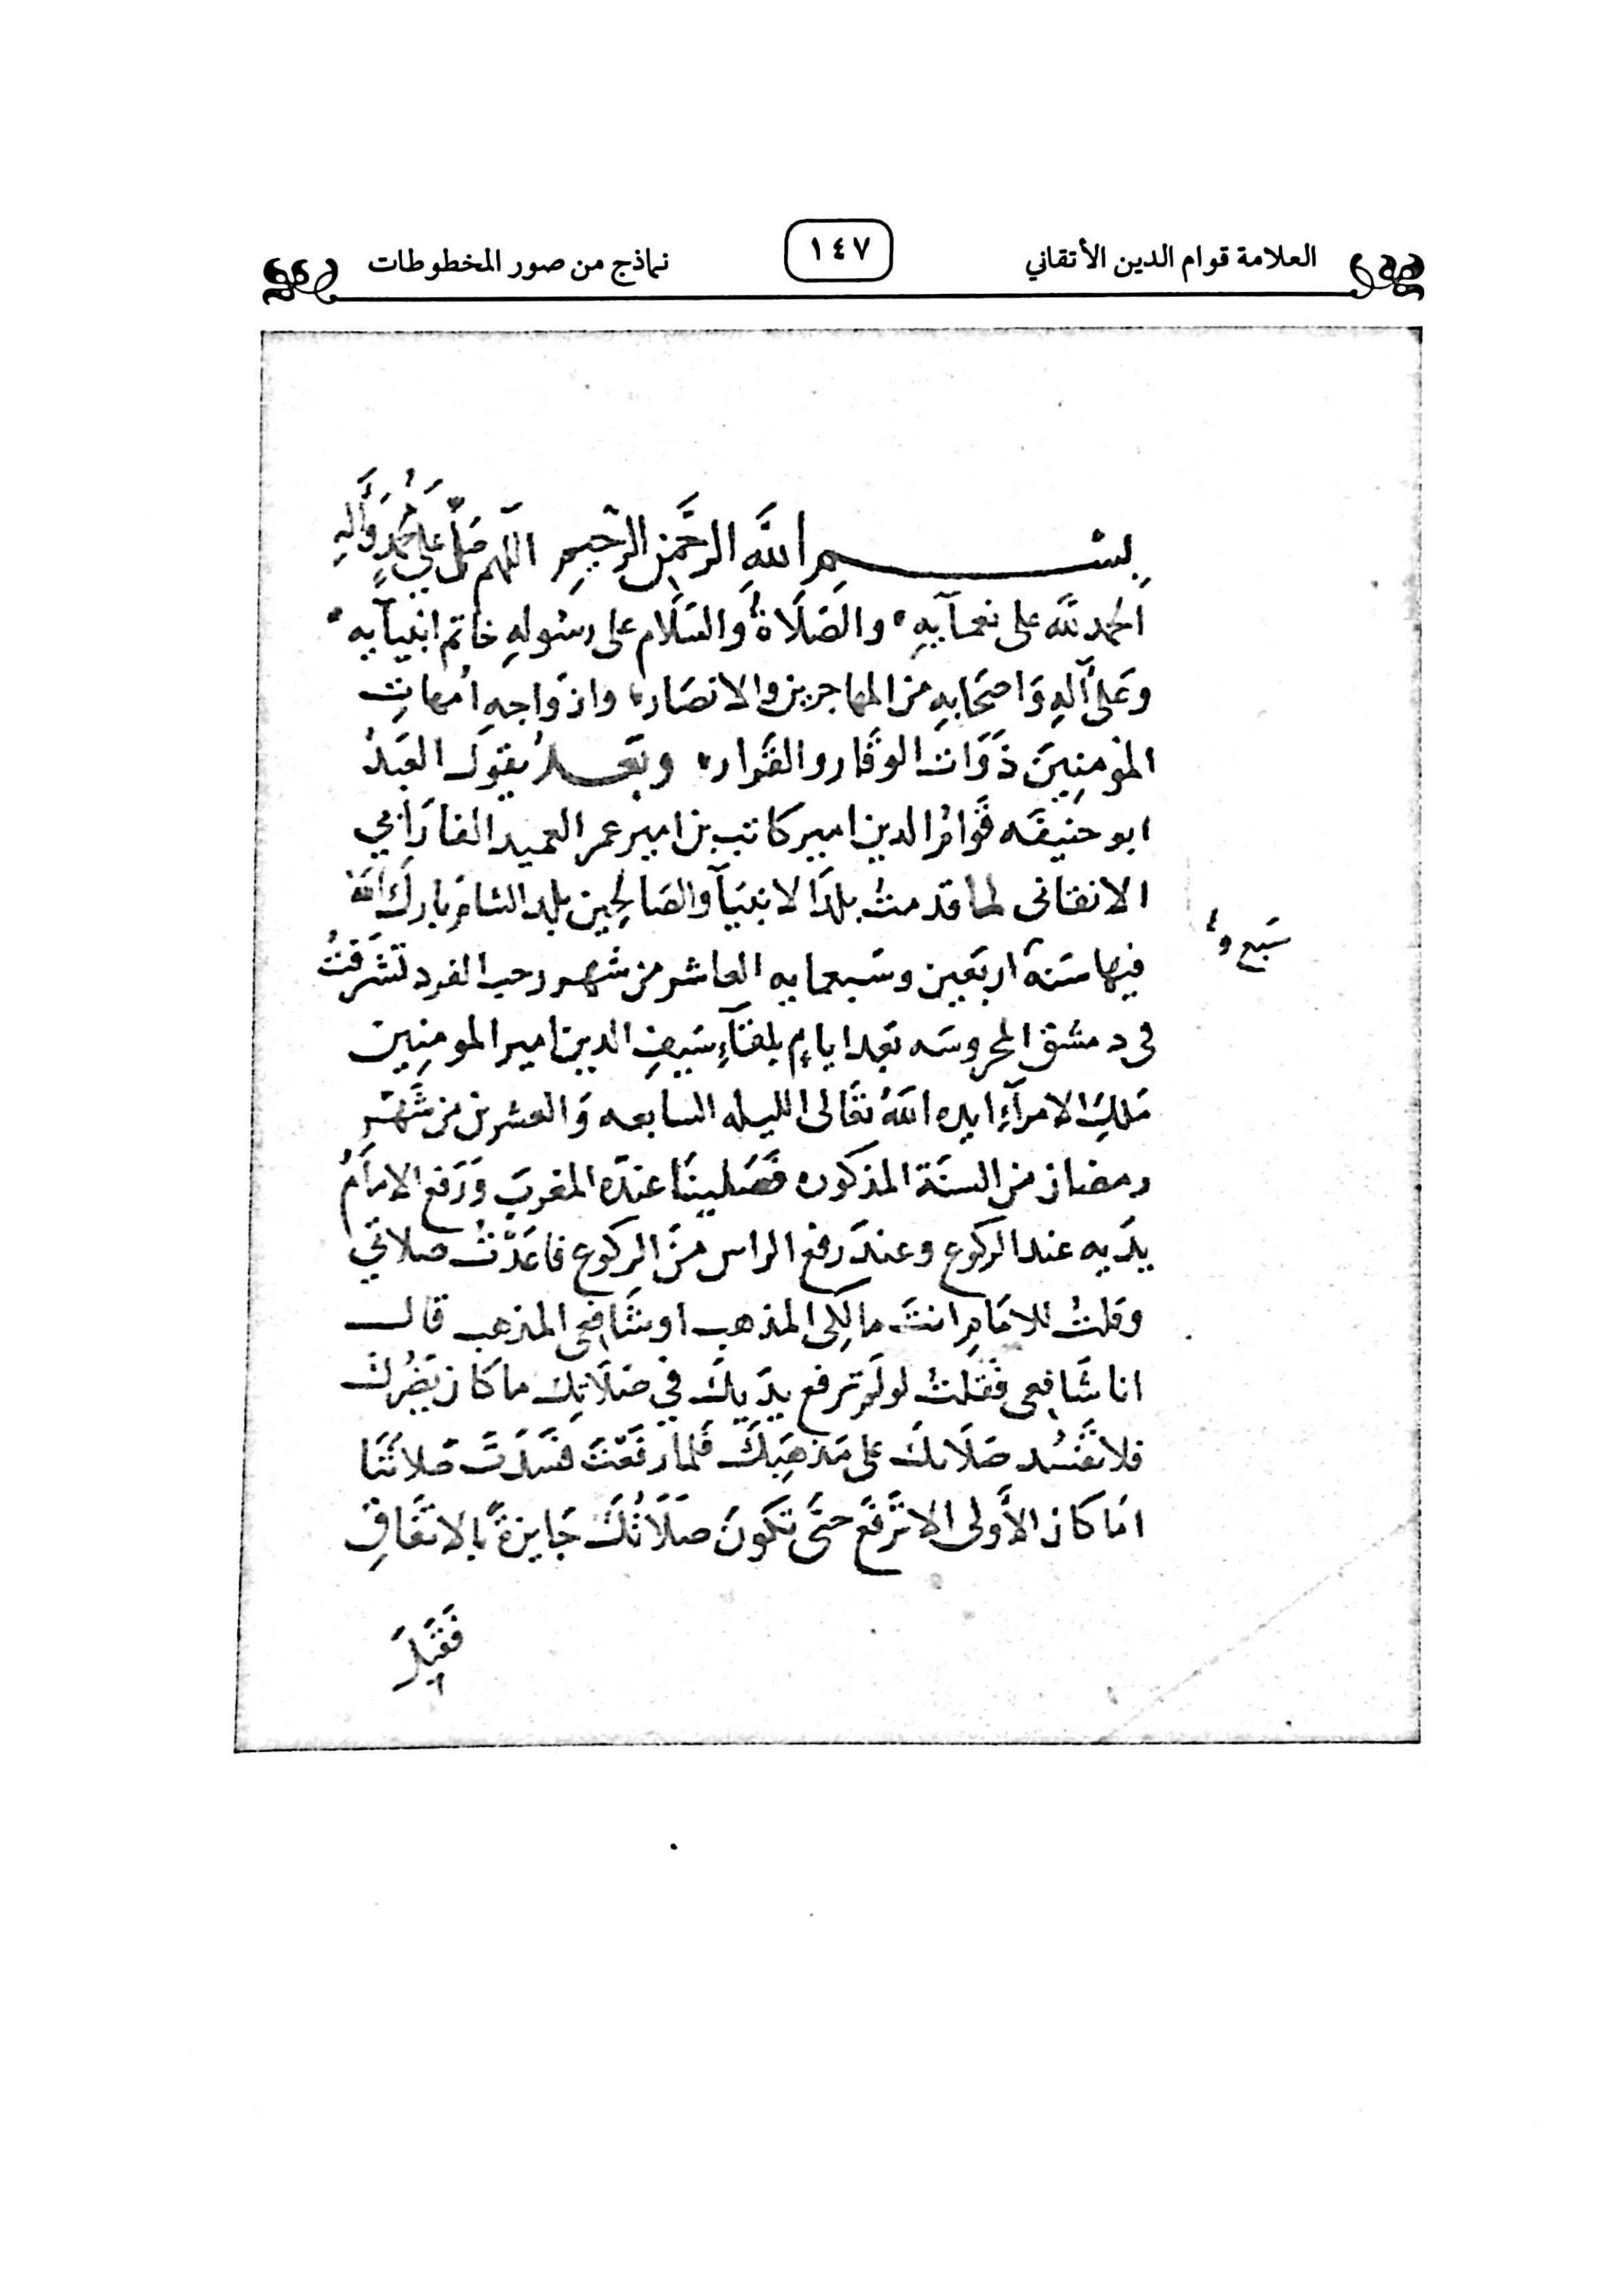 العلامة قوام الدين الأتقاني
١٤٧
نماذج من صور المخطوطات
بِسْمِ اللَّهِ الرحمن الرَّحِيمِ اللهم صَلِّ على محمدٍ وَآلِهِ
الحمد لله على نعمآيهِ والصَلَاةُ وَالسَلَام على رسُولهِ خاتم انبيآيه
وعَلى آلهِ وَاصحَابهِ من المهاجرين والانصَار وازوَاجهِ امهاتِ
المؤمِنِينَ ذَوَات الوقَار والقَرار وبَعـدُ يقولُ العَبدُ
ابو حَنِيفَه قَوامُ الدين امير كاتب بن امير عمر العميد الفارَابي
الاتقانى لما قدمتُ بلدَ الانبيَآ والصَالحِين بلد الشام بَارك اللهُ
فيها سَنة اربَعين وسَبعمايه العاشر من شهر رجب الفرد تشَرفتُ
سَبع و
فى دمشق المحروسَه بَعد ايامٍ بلقآءِ سَيفِ الدين امير المومنِين
مَلكِ الامرآءِ ايده اللهُ تعَالى الليله السابعه وَالعشرين من شَهر
رمضان من السنَة المذكوره فَصَلينَا عندَه المغربَ وَرَفع الامَامُ
يدَيه عند الركوع وعندَ رفع الراس منَ الركوع فاعَدْتُ صلاتي
وقلتُ للامَامِ انتَ مالِكى المذهب او شَافِعى المذهب قال
انا شَافِعى فقَلتُ لو لَم ترفع يدَيكَ في صَلَاتِكَ ما كان يَضُركَ
فلا تَفسُد صَلَاتكَ على مَذهَبِكَ فَلما رفَعْتَ فسَدَتْ صَلاتُنَا
امَا كان الأَولى الا تَرفَع حتى تكونَ صَلَاتُكَ جَايزةً بالاتفَاقِ